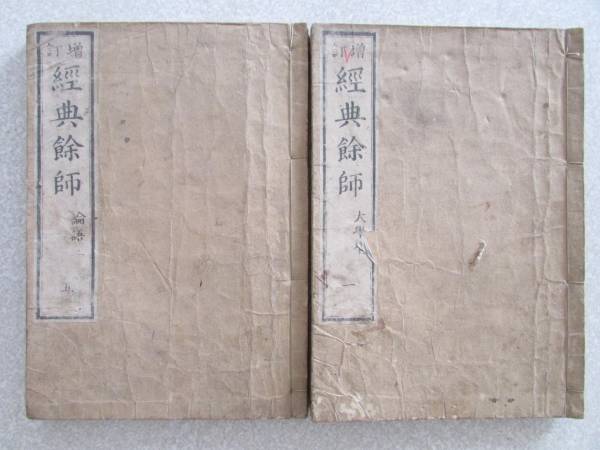 増訂
經典餘師
大學
一
増訂
經典餘師
論語